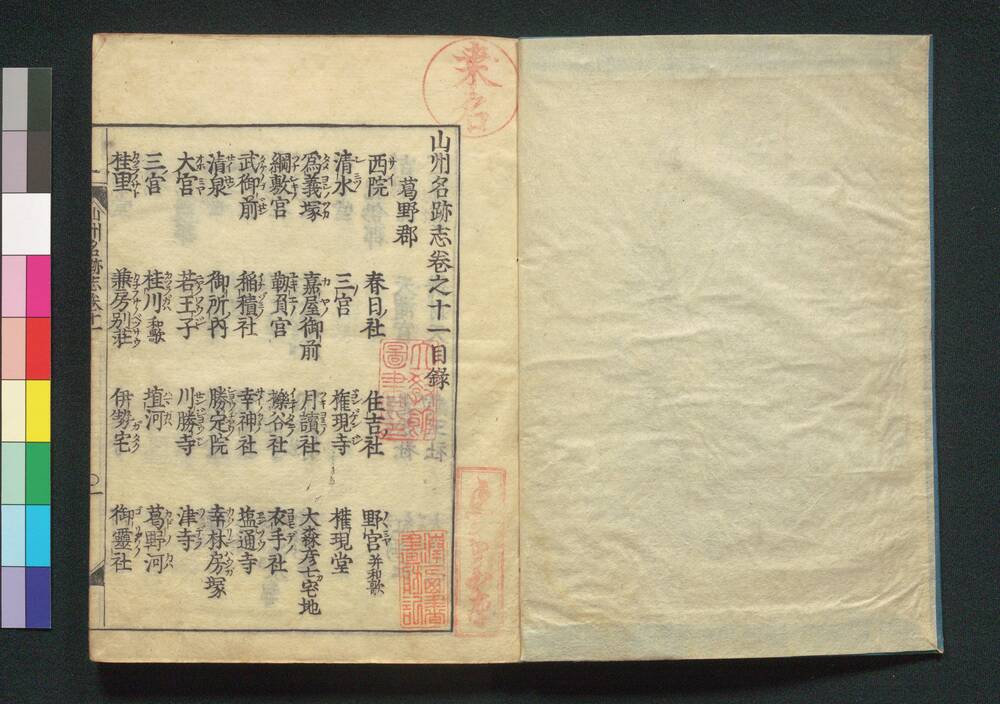 山州名跡志卷之十一目錄
葛野郡
西院 春日社 住吉社 野宮并和歌
清水 三宮 権現寺 権現堂
爲義塚 嘉屋御前 月讀社 大森彦七宅地
綱敷宮 勒負宮 櫟谷社 衣手社
武御前 稲積社 幸神社 塩通寺
清泉 御所内 勝定院 幸林房塚
大宮 若王子 川勝寺 津寺
三宮 桂川和歌 埴河 葛野河
桂里 兼房別荘 伊勢宅 御靈社
山州名跡志卷十一
桒名